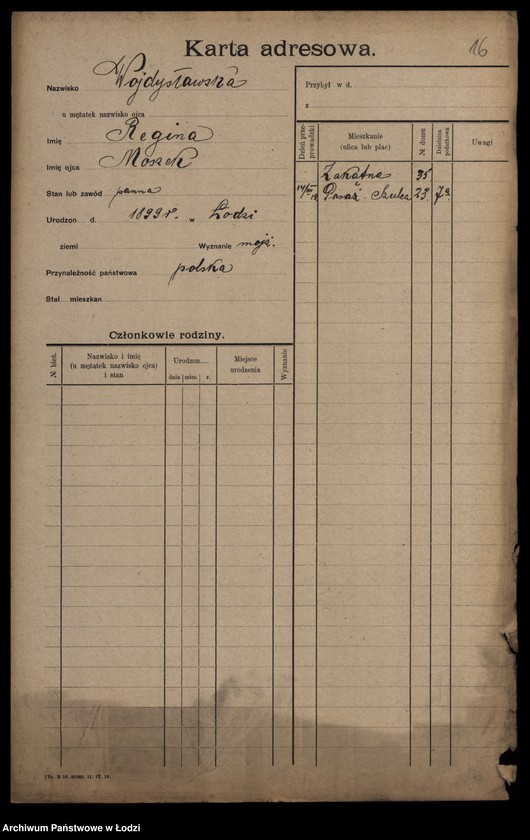 Karta adresowa.
16
Nazwisko Wojdysławska
u mężatek nazwisko ojca
Imię Regina
Imię ojca Moszek
Stan lub zawód panna
Urodzon d. 1899 r. w Łodzi
ziemi Wyznanie mojż.
Przynależność państwowa polska
Stał mieszkan
Przybył w d.
z
Dzień przeprowadzki
Mieszkanie (ulica lub plac)
№ domu
Dzielnica podatkowa
Uwagi
Zakątna 35
Pasaż Szulca 23 7a
Członkowie rodziny.
№ bież.
Nazwisko i imię (u mężatek nazwisko ojca) i stan
Urodzon
dnia mies. r.
Miejsce urodzenia
Wyznanie
Archiwum Państwowe w Łodzi